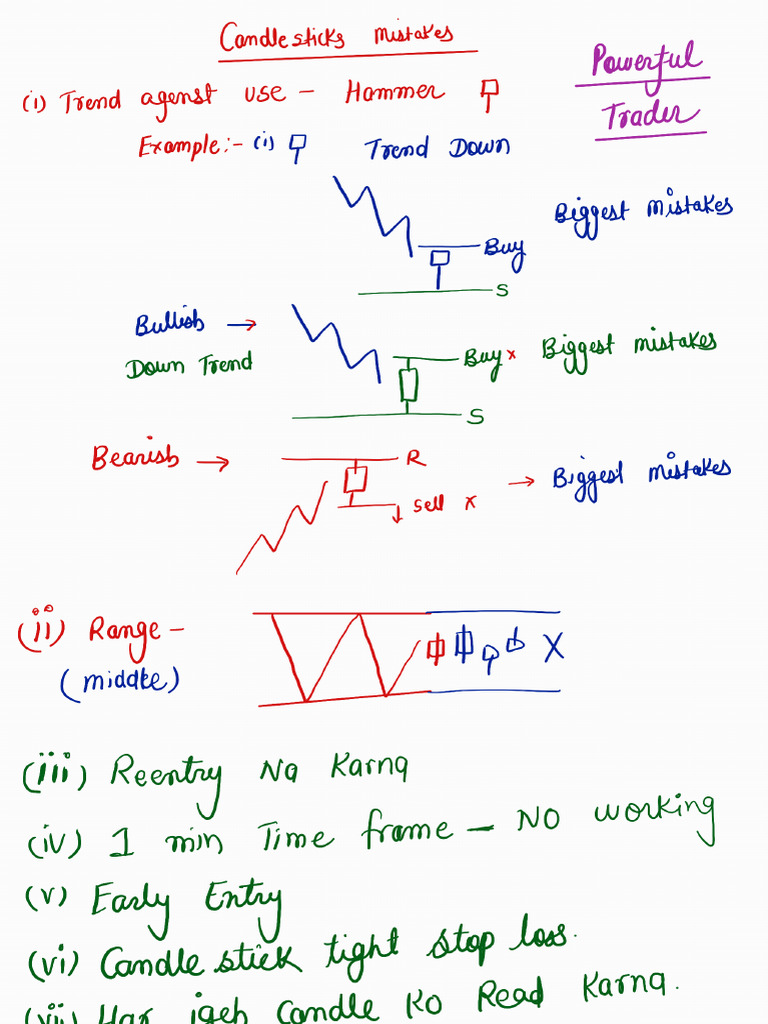 Candlesticks Mistakes
Powerful
Trader
(i) Trend agenst use - Hammer
Example:- (i) Trend Down
Biggest Mistakes
Buy
S
Bullish →
Down Trend
Buy x Biggest mistakes
S
Bearish → R
↓ Sell x → Biggest mistakes
(ii) Range -
(middle)
X
(iii) Reentry Na Karna
(iv) 1 min Time frame - NO working
(v) Early Entry
(vi) Candle stick tight stop loss.
(vii) Har jgeh Candle Ko Read Karna.